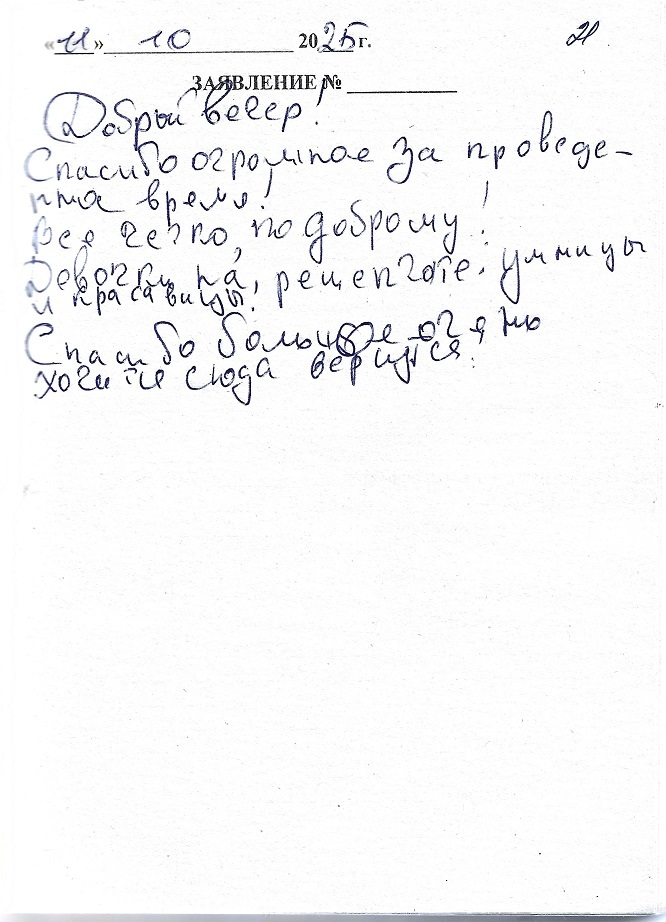 «11» 10 2025 г. 21
ЗАЯВЛЕНИЕ №
Добрый вечер!
Спасибо огромное за проведе-
нное время!
Все четко, по доброму!
Девочки на рецепшоте: умницы
и красавицы!
Спасибо большое очянь
хочится сюда вернутся!